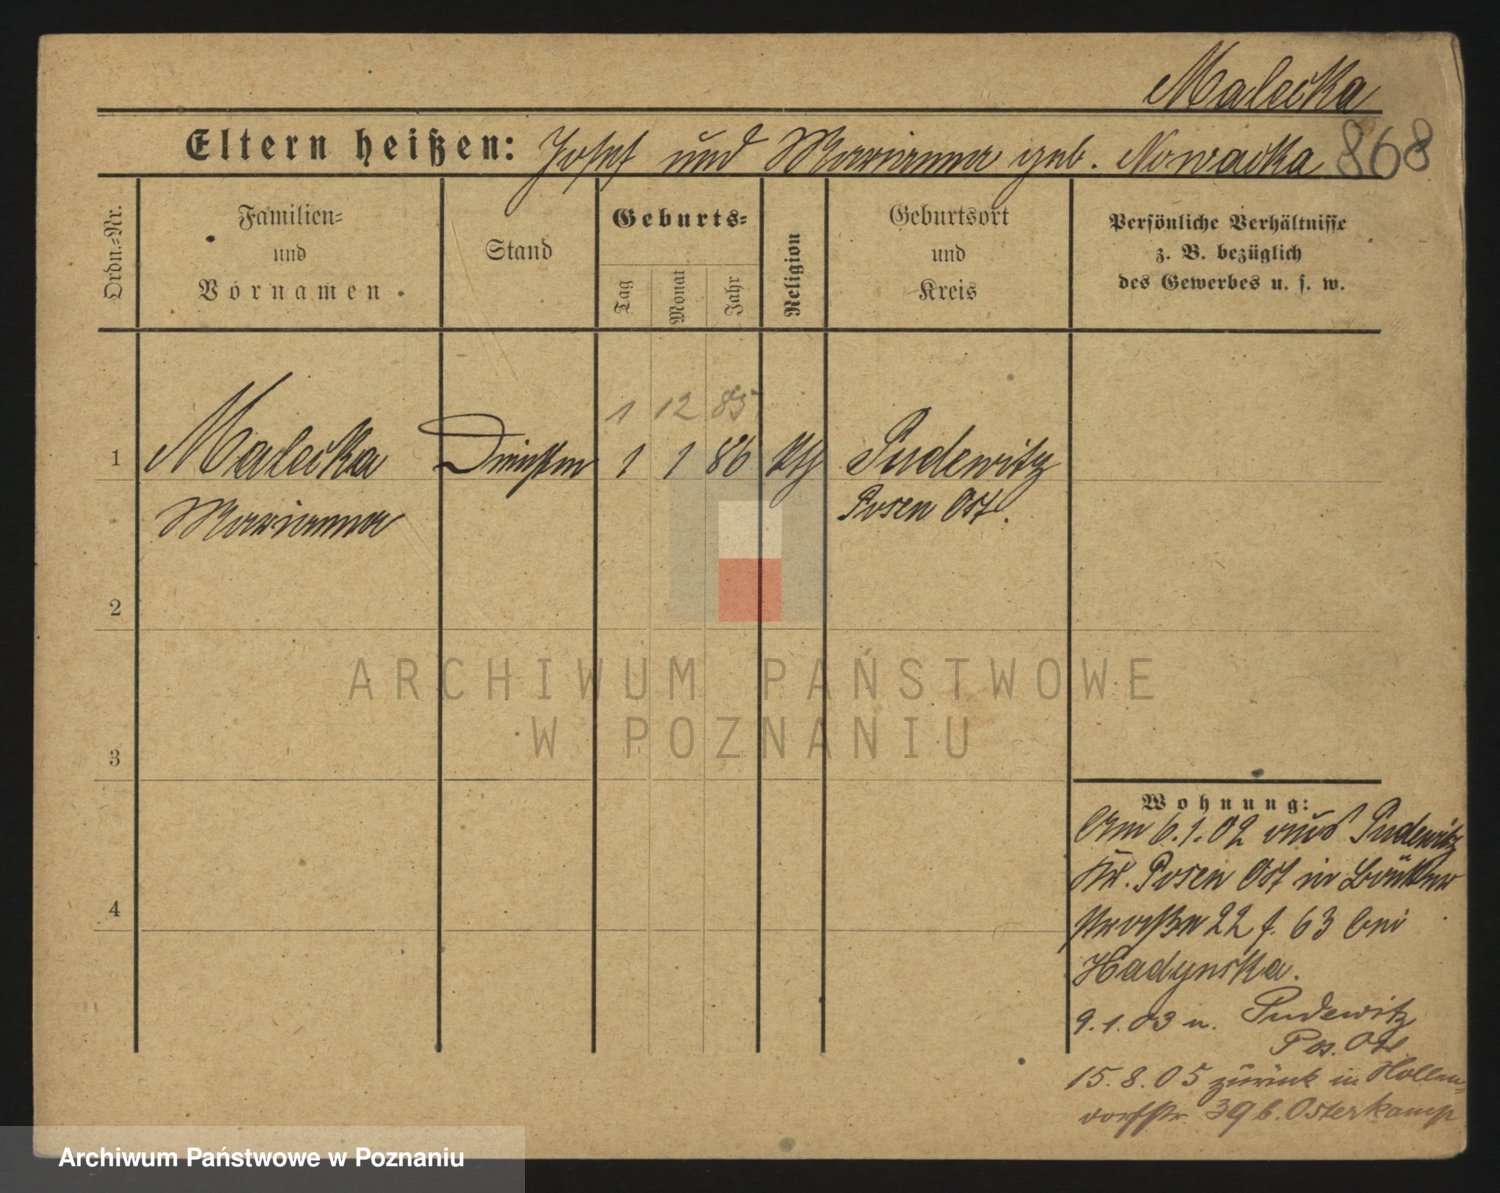 Malecka
Eltern heißen: Josef und Marianna geb. Nowacka 868
Ordn.-Nr.
Familien-
und
Vornamen.
Stand
Geburts-
Tag
Monat
Jahr
Religion
Geburtsort
und
Kreis
Persönliche Verhältnisse
z. B. bezüglich
des Gewerbes u. s. w.
1 12 85
1 Malecka 1 1 86 kth Pudewitz
Marianna Posen Ost.
2
3
4
Wohnung:
Am 6.1.02 aus Pudewitz
Kr. Posen Ost in
straße 22 f. 63 bei
Hadynska.
9.1.03 n. Pudewitz
Pos. Ost
15.8.05 zurück in Hollen-
dorfstr. 39 b. Osterkamp
ARCHIWUM PAŃSTWOWE
W POZNANIU
Archiwum Państwowe w Poznaniu